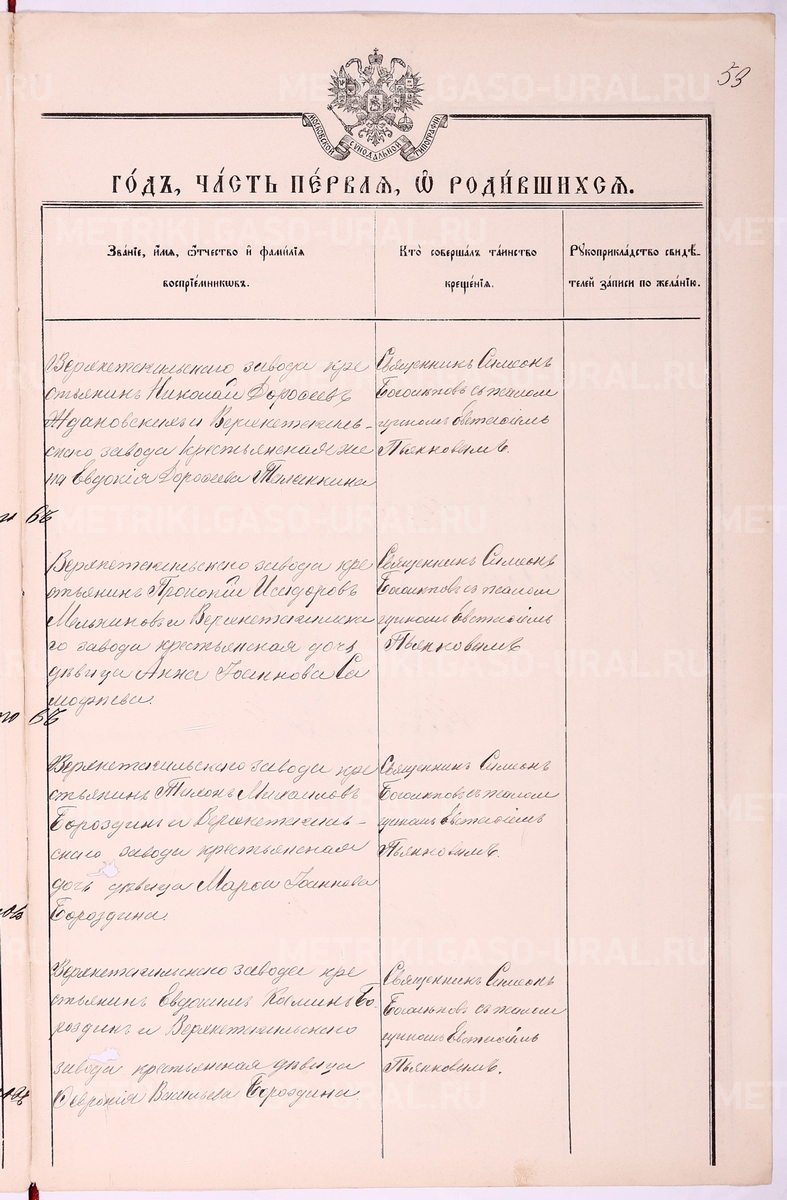 53
МОСКОВСКОЙ СѴНОДАЛЬНОЙ ТИПОГРАФІИ
ГО́ДЪ, ЧА́СТЬ ПЕ́РВАЯ, Ѡ҆ РОДИ́ВШИХСЯ.
Зва́нїе, и҆́мя, ѻ҆́тчество и҆ фами́лїя
воспрїе́мникѡвъ.
Кто̀ соверша́лъ та́инство
креще́нїя.
Рꙋкоприкла́дство свидѣ́-
телей за́писи по жела́нїю.
Верхнетагильскаго завода кре
стьянинъ Николай Дорофеевъ
Ждановскихъ и Верхнетагиль-
скаго завода крестьянская же
на Евдокія Дорофеева
Священникъ Симеонъ
съ псалом
щикомъ Евгеніемъ
Пьянковымъ.
Верхнетагильскаго завода кре
стьянинъ Прокопій Исидоровъ
Мельниковъ и Верхнетагильска
го завода крестьянская дочь
дѣвица Анна Іоаннова Са
Священникъ Симеонъ
съ псалом
щикомъ Евгеніемъ
Пьянковымъ
Верхнетагильскаго завода кре
стьянинъ Тихонъ Михаиловъ
Бороздинъ и Верхнетагиль-
скаго завода крестьянская
дочь дѣвица Марѳа Іоаннова
Бороздина.
Священникъ Симеонъ
съ псалом
щикомъ Евгеніемъ
Пьянковымъ.
Верхнетагильскаго завода кре
стьянинъ Евдокимъ Козминъ Бо
роздинъ и Верхнетагильскаго
завода крестьянская дѣвица
Ѳеврония Васильева Бороздина
Священникъ Симеонъ
съ псалом
щикомъ Евгеніемъ
Пьянковымъ.
METRIKI.GASO-URAL.RU